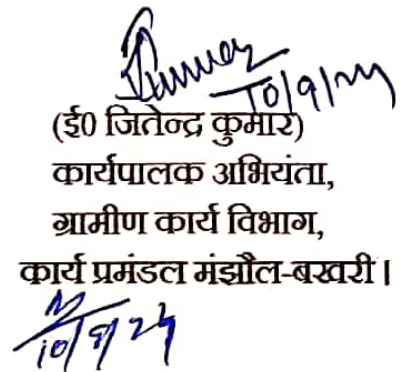 10/9/24
(ई0 जितेन्द्र कुमार)
कार्यपालक अभियंता,
ग्रामीण कार्य विभाग,
कार्य प्रमंडल मंझौल-बखरी।